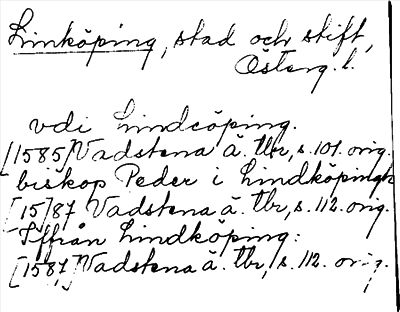 Linköping, stad och stift,
Österg. l.
vdi Lindcöping.
[1585] Vadstena ä. tbr, s. 101. orig.
biskop Peder i Lindköpingh
[15]87 Vadstena ä. tbr, s. 112. orig.
Iffrån Lindköping:
[1587] Vadstena ä. tbr, s. 112. orig.